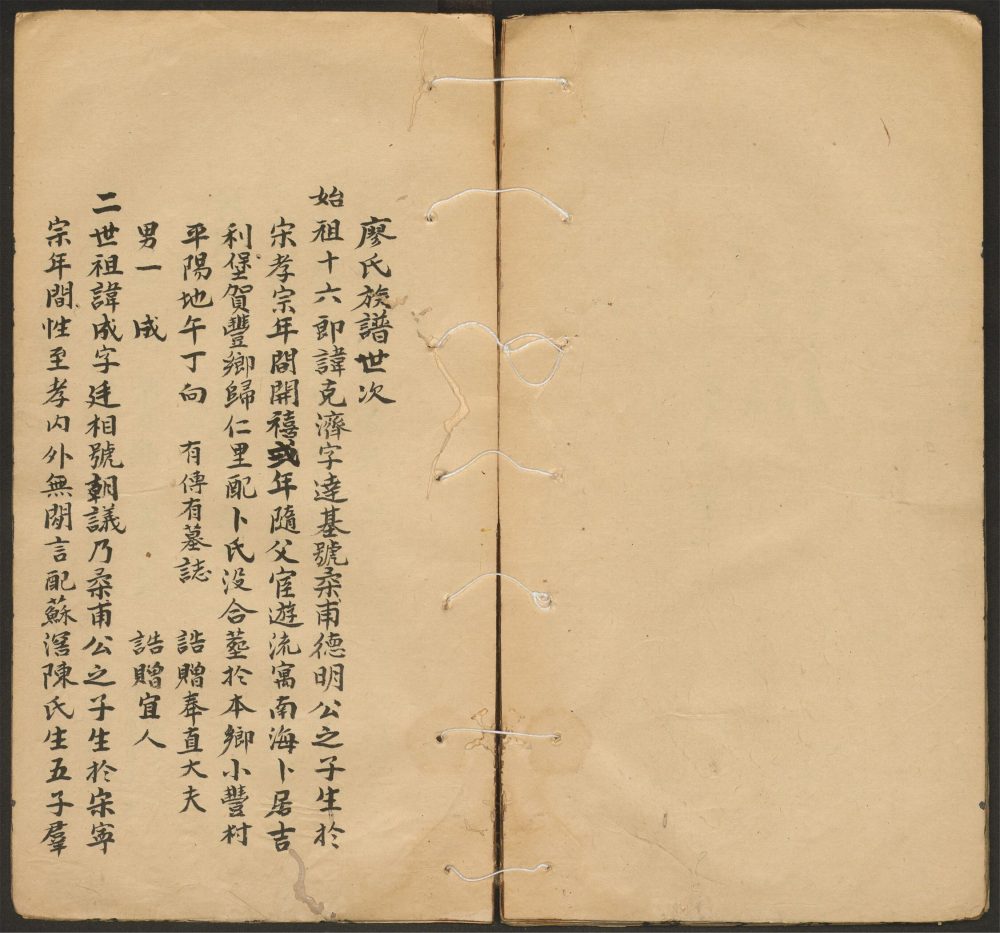 廖氏族譜世次
始祖十六郎諱克濟字達基號柔甫德明公之子生於
宋孝宗年間開禧貳年隨父宦遊流寓南海卜居吉
利堡賀豐鄉歸仁里配卜氏没合塟於本鄉小豐村
平陽地午丁向　有傳有墓誌　誥贈奉直大夫
男一　成　誥贈宜人
二世祖諱成字廷相號朝議乃柔甫公之子生於宋寧
宗年間性至孝内外無間言配蘇滘陳氏生五子羣